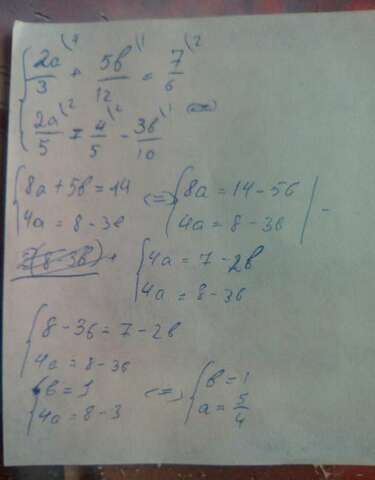 { 2a/3 \4 + 5b/12 \1 = 7/6 \2
{ 2a/5 \2 = 4/5 \2 - 3b/10 \1 <=>
{ 8a + 5b = 14 <=> { 8a = 14 - 5b | -
{ 4a = 8 - 3b { 4a = 8 - 3b
{ 4a = 7 - 2b
{ 4a = 8 - 3b
{ 8 - 3b = 7 - 2b
{ 4a = 8 - 3b
{ b = 1 <=> { b = 1
{ 4a = 8 - 3 { a = 5/4